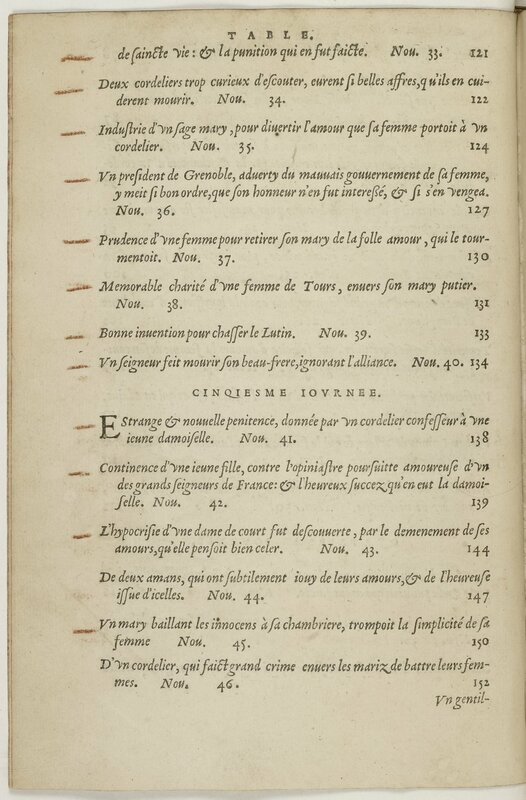 TABLE.
de saincte vie: & la punition qui en fut faicte. Nou. 33. 121
Deux cordeliers trop curieux d'escouter, eurent si belles affres, qu'ils en cui-
derent mourir. Nou. 34. 122
Industrie d'vn sage mary, pour diuertir l'amour que sa femme portoit à vn
cordelier. Nou. 35. 124
Vn president de Grenoble, aduerty du mauuais gouuernement de sa femme,
y meit si bon ordre, que son honneur n'en fut interessé, & si s'en vengea.
Nou. 36. 127
Prudence d'vne femme pour retirer son mary de la folle amour, qui le tour-
mentoit. Nou. 37. 130
Memorable charité d'vne femme de Tours, enuers son mary putier.
Nou. 38. 131
Bonne inuention pour chasser le Lutin. Nou. 39. 133
Vn seigneur feit mourir son beau-frere, ignorant l'alliance. Nou. 40. 134
CINQIESME IOVRNEE.
EStrange & nouuelle penitence, donnée par vn cordelier confesseur à vne
ieune damoiselle. Nou. 41. 138
Continence d'vne ieune fille, contre l'opiniastre poursuitte amoureuse d'vn
des grands seigneurs de France: & l'heureux succez qu'en eut la damoi-
selle. Nou. 42. 139
L'hypocrisie d'vne dame de court fut descouuerte, par le demenement de ses
amours, qu'elle pensoit bien celer. Nou. 43. 144
De deux amans, qui ont subtilement iouy de leurs amours, & de l'heureuse
issue d'icelles. Nou. 44. 147
Vn mary baillant les innocens à sa chambriere, trompoit la simplicité de sa
femme Nou. 45. 150
D'vn cordelier, qui faict grand crime enuers les mariz de battre leurs fem-
mes. Nou. 46. 152
Vn gentil-